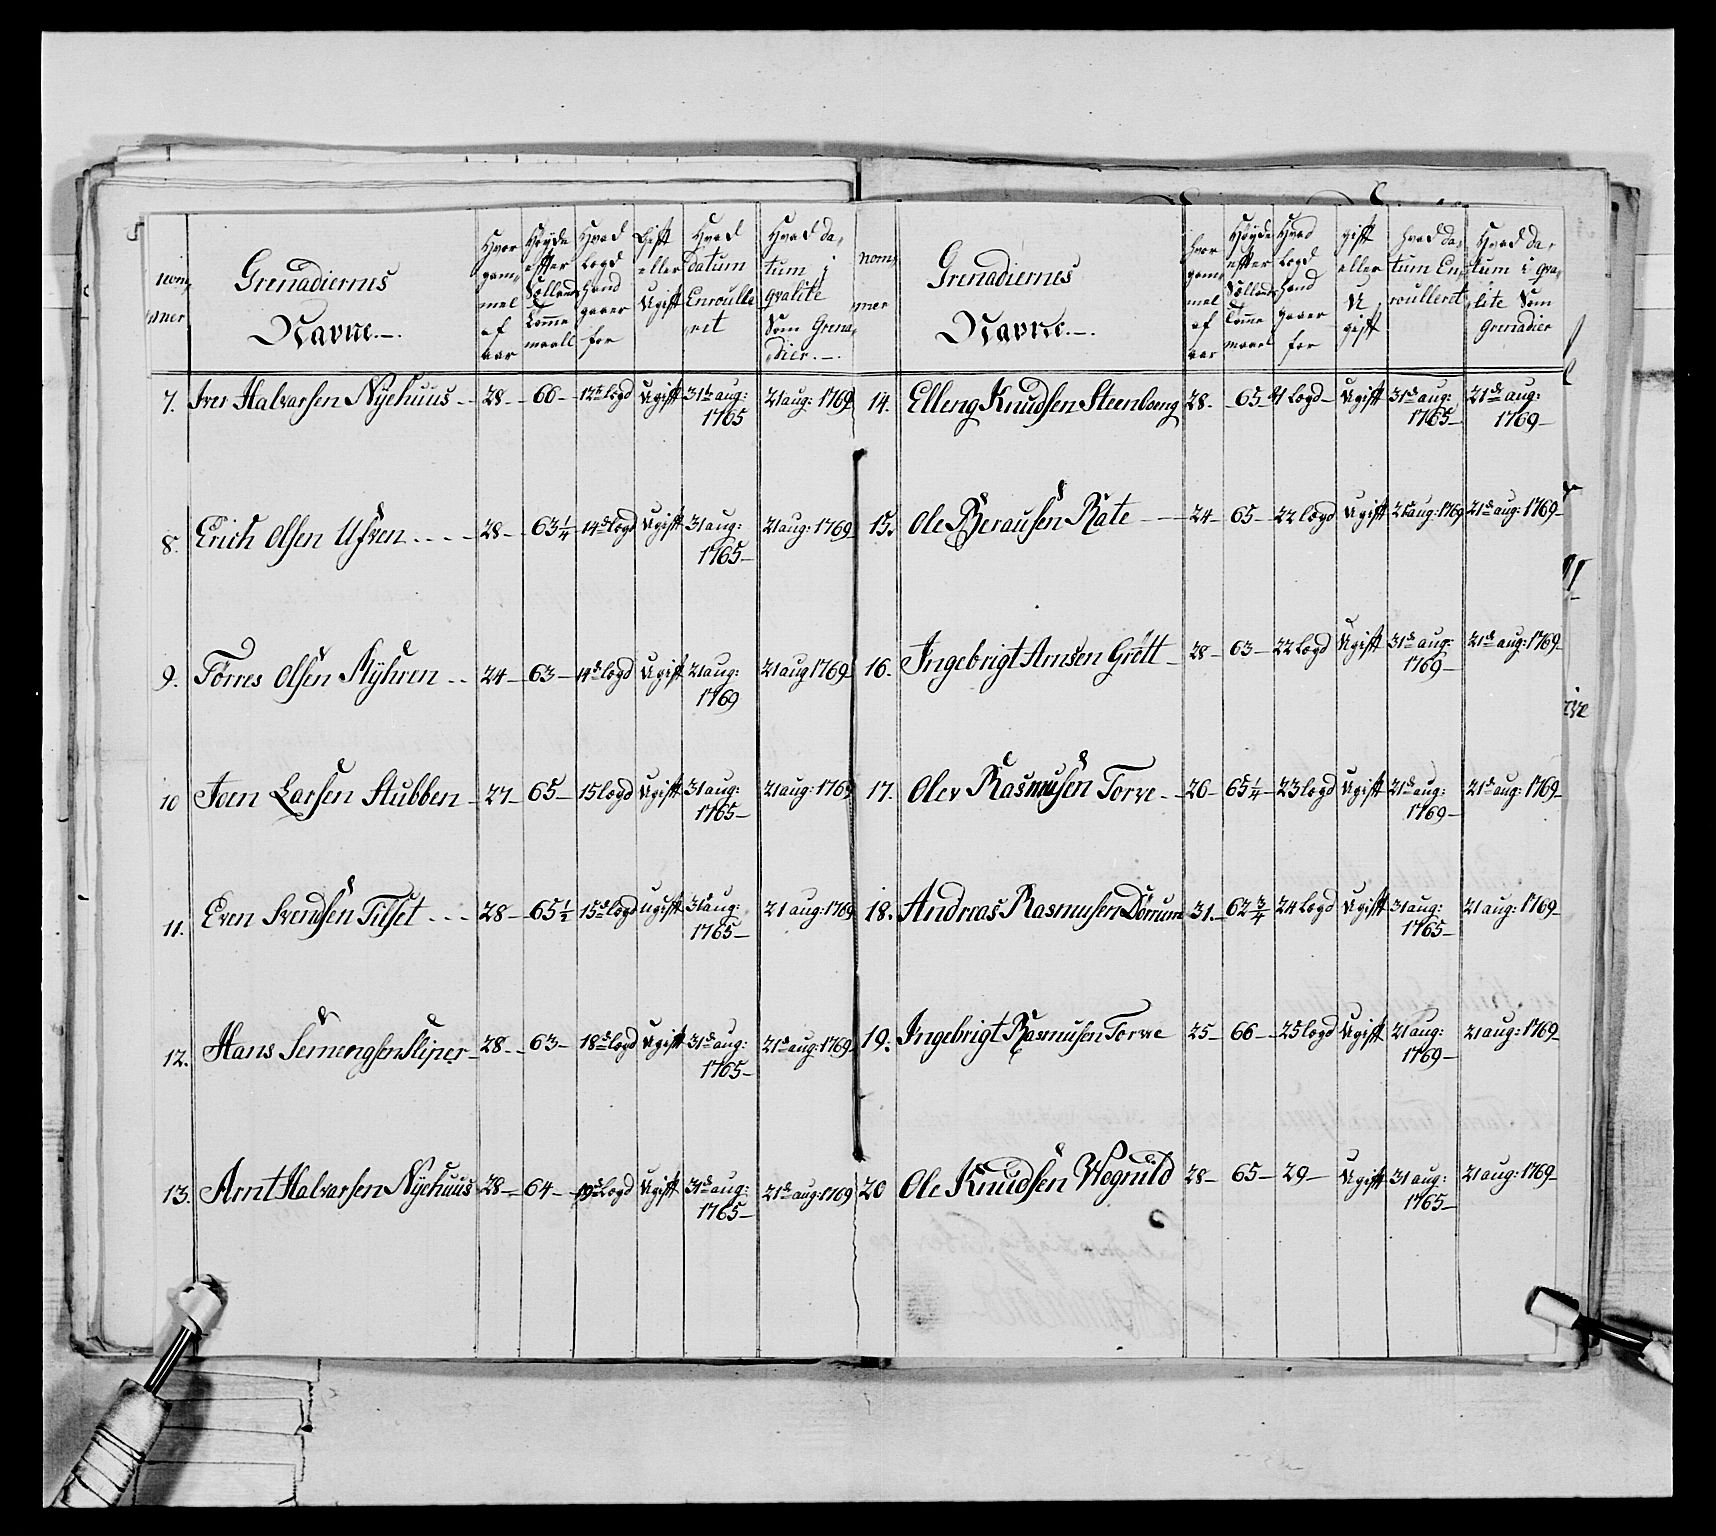 nom,
mer
Grenadiernes
Navne.—.
Hvor
gam,
mel
af
aar
Høyde
effter
Sællands
Tomme
maall
Hvad
Legd
Hand
giører
for
Gift
eller
Ugift
Hvad
Datum
Enroulle
ret
Hvad da,
tum i
qvalite
Som Grena,
dier.—.
7. Iver Halvarsen Nÿehuus — 28— 66— 12te legd Ugift 31te aug: 1765 21 aug: 1769
8. Erich Olsen Ufven . . . — 28— 63 1/4 14de legd Ugift 31 aug: 1765— 21 aug: 1769
9. Tørres Olsen Mÿhren . . 24— 63— 14de legd Ugift 21 aug: 1769 21 aug 1769
10 Joen Larsen Stubben — 27— 65— 15 legd Ugift 31 aug: 1765— 21 aug: 1769
11. Even Svendsen Tilset . . . 28— 65 1/2 15de legd ugift 31de aug: 1765— 21 aug: 1769
12. Hans Semengsen Sliper — 28— 63— 18de legd Ugift 31de aug: 1765— 21de aug: 1769
13. Arnt Halvarsen Nÿehuus 28— 64— 19de legd Ugift 31de aug: 1765— 21de aug: 1769
nom,
mer
Grenadiernes
Navne.—.
hvor
gam
mel
af
aar
Høyde
effter
Sællands
Tomme
maael
Hvad
Legd
Hand
giører
for
gift
eller
U
gift
hvad da,
tum En,
roulleret
Hvad da,
tum i qva,
lite Som
Grenadier
14. Elleng Knudsen Steenboeng 28. — 65— 21 legd— Ugift 31de aug: 1765— 21de aug: 1769—
15. Ole Berausen Rate — — 24— 65— 22 legd Ugift 21de aug: 1769 21de aug: 1769—
16. Ingebrigt Arnsen Grøtt — 28— 63— 22 legd Ugift 31de aug: 1769— 21de aug: 1769—
17. Olev Rasmusen Torve — 26— 65 1/4— 23 legd Ugift 21de aug: 1769— 21de aug: 1769—
18. Andreas Rasmusen Dørrum 31.— 62 3/4 24 legd Ugift 31 aug: 1765— 21 aug: 1769—
19. Ingebrigt Rasmusen Torve 25— 66— 25 legd Ugift 21 aug: 1769— 21 aug: 1769—
20 Ole Knudsen Wognild 28— 65— 29— Ugift 31 aug: 1765— 21 aug: 1769—